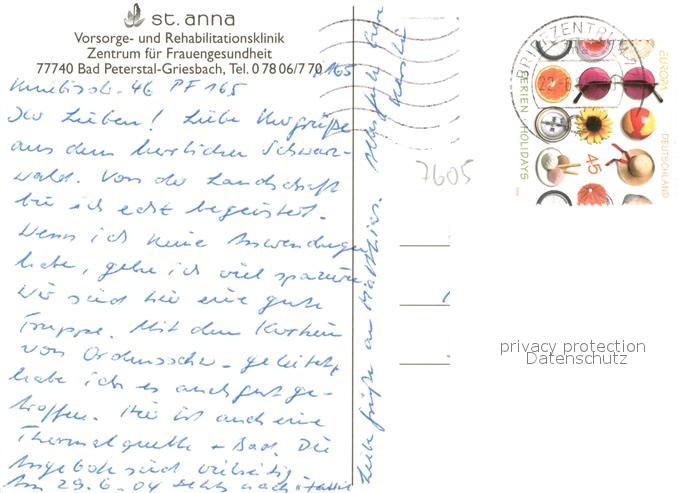 st. anna
Vorsorge- und Rehabilitationsklinik
Zentrum für Frauengesundheit
77740 Bad Peterstal-Griesbach, Tel. 0 78 06/7 70
165
46 PF 165
Ihr Lieben! Liebe Kurgrüße
aus dem herrlichen Schwarz-
wald. Von der Landschaft
bin ich echt begeistert.
Wenn ich keine Anwendungen
habe, gehe ich viel spazieren
Wir sind hier eine gute
Truppe. Mit den Kurheim
von Ordensschw. geleitet,
habe ich es auch gut ge-
troffen. Hier ist auch eine
Thermalquelle + Bad. Die
Angebote sind vielseitig
Am 29.6.04 nach
Liebe Grüße an Matthias.
7605
BRIEFZENTRUM
22.6
FERIEN · HOLIDAYS
45
EUROPA
DEUTSCHLAND
privacy protection
Datenschutz